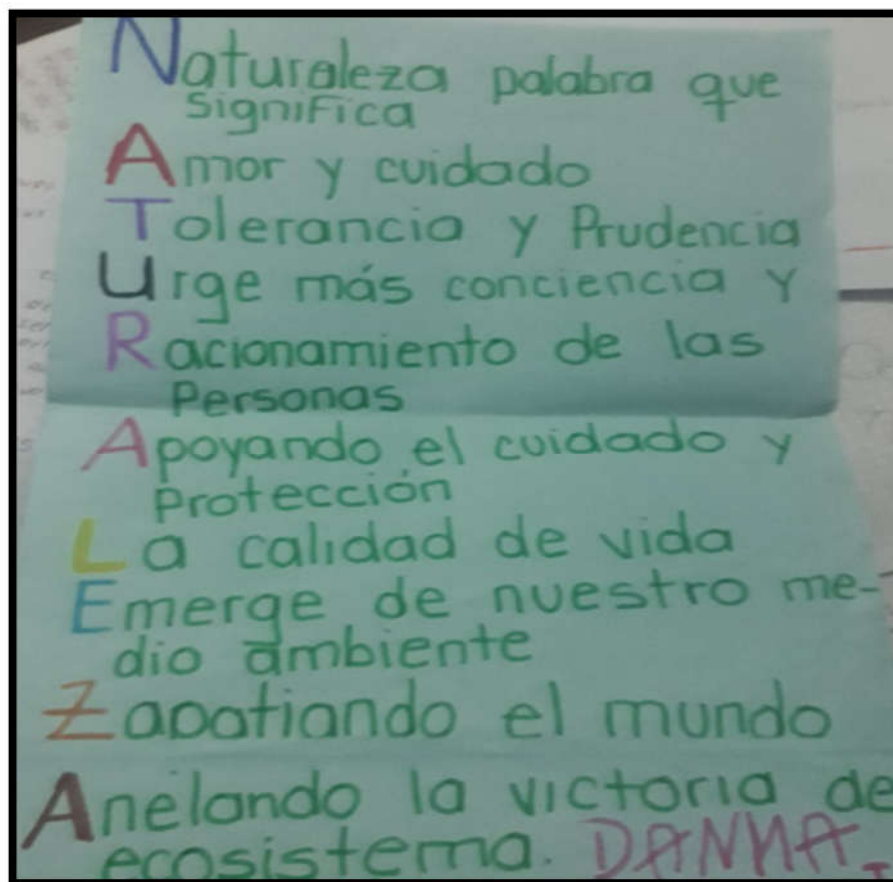 Naturaleza palabra que
significa
Amor y cuidado
Tolerancia y Prudencia
Urge más conciencia y
Racionamiento de las
Personas
Apoyando el cuidado y
Protección
La calidad de vida
Emerge de nuestro me-
dio ambiente
Zapatiando el mundo
Anelando la victoria de
ecosistema. DANNA